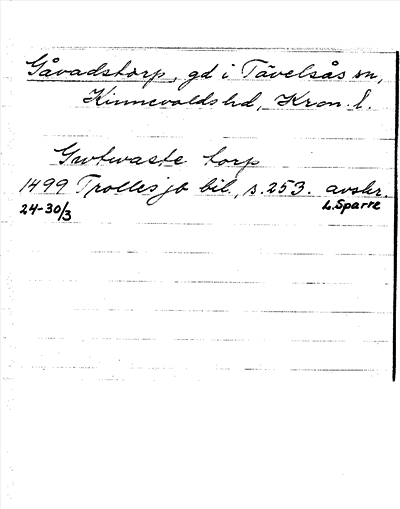 Gåvadstorp, gd i Tävelsås sn,
Kinnevalds hd, Kron. l.
Gwtwaste torp
1499 Trolles jb bil, s. 253. avskr.
24-30/3 L. Sparre